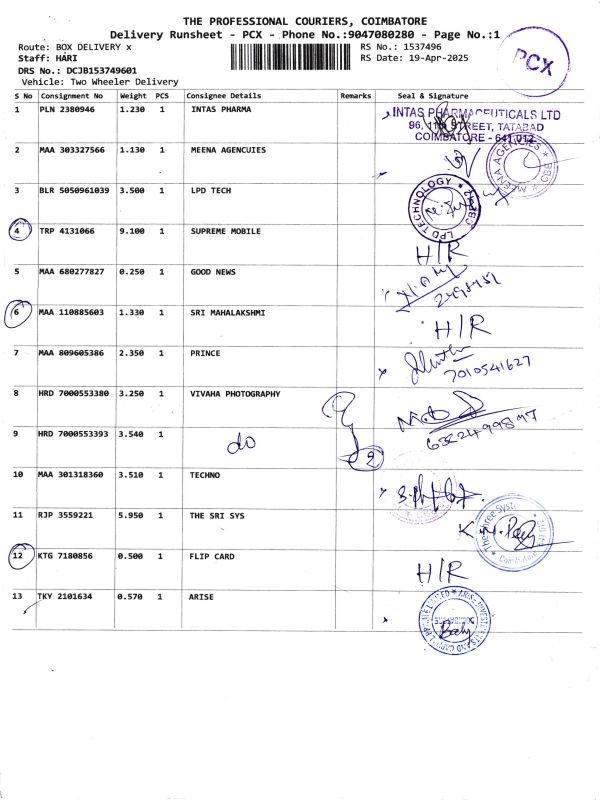 THE PROFESSIONAL COURIERS, COIMBATORE
Delivery Runsheet - PCX - Phone No.:9047080280 - Page No.:1
Route: BOX DELIVERY x
RS No.: 1537496
Staff: HARI
RS Date: 19-Apr-2025
DRS No.: DCJB153749601
Vehicle: Two Wheeler Delivery
PCX
S No Consignment No Weight PCS Consignee Details Remarks Seal & Signature
1 PLN 2380946 1.230 1 INTAS PHARMA
INTAS PHARMACEUTICALS LTD
96, 11th STREET, TATABAD
COIMBATORE - 641 012
2 MAA 303327566 1.130 1 MEENA AGENCUIES
MEENA AGENCIES * CBE *
3 BLR 5050961039 3.500 1 LPD TECH
LPD TECHNOLOGY * CBE
4 TRP 4131066 9.100 1 SUPREME MOBILE H/R
5 MAA 680277827 0.250 1 GOOD NEWS
6 MAA 110885603 1.330 1 SRI MAHALAKSHMI H/R
7 MAA 809605386 2.350 1 PRINCE
7010541627
8 HRD 7000553380 3.250 1 VIVAHA PHOTOGRAPHY
9 HRD 7000553393 3.540 1 do 2
10 MAA 301318360 3.510 1 TECHNO
11 RJP 3559221 5.950 1 THE SRI SYS
12 KTG 7180856 0.500 1 FLIP CARD H/R
13 TKY 2101634 0.570 1 ARISE